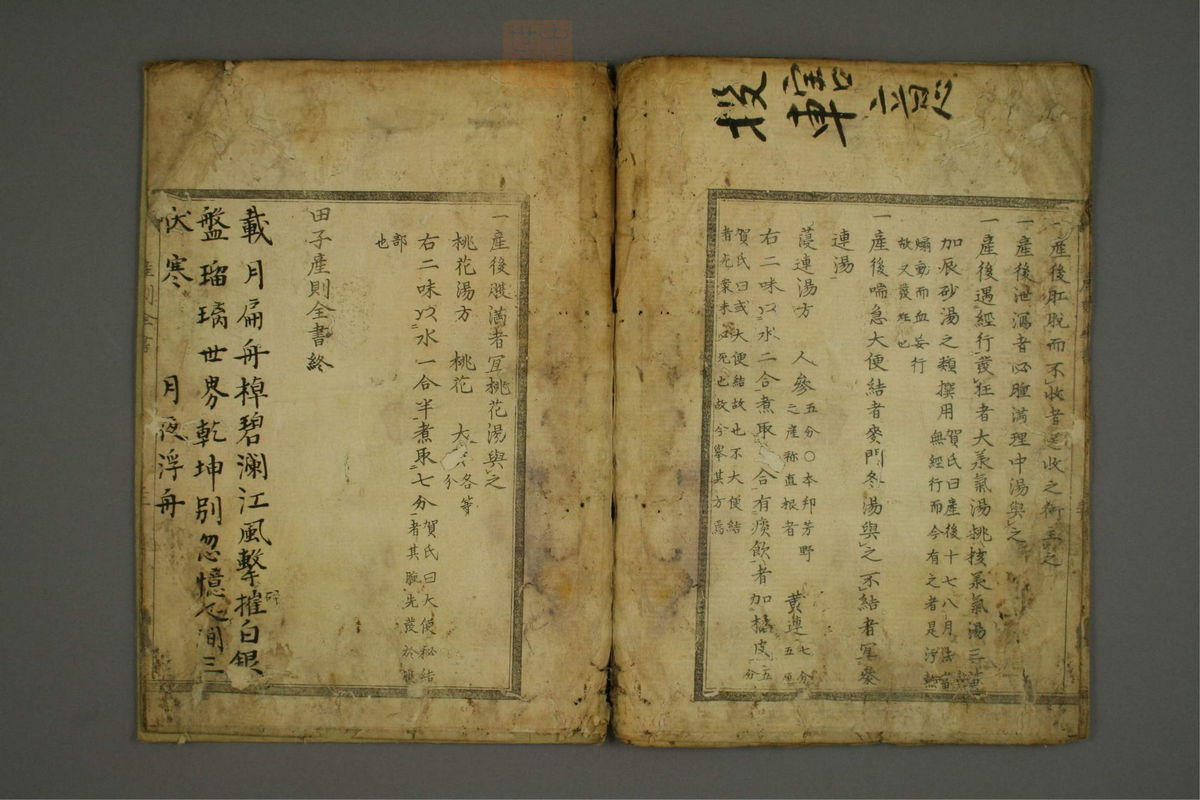 一産後肛脱而不收者是收之術主之
一産後泄瀉者必腫滿理中湯與之
一産後遇經行發狂者大羕氣湯桃核羕氣湯三黄
加辰砂湯之類撰用
賀氏曰産後十七八月法當
無經行而今有之者是汚熱
蠕動而血妄行
故又發狂也
一産後喘急大便結者麥門冬湯與之不結者宜參
連湯
薓連湯方 人參
五分○本邦芳野
之産称直根者
黄連
七分
五厘
右二味以水二合煮取一合有痰飲者加橘皮五
分
賀氏曰或大便結故也不大便結
者先棄未必死也故今擧其方爲
一産後脹滿者宜桃花湯與之
桃花湯方 桃花 大
各等
分
右二味以水一合半煮取七分
賀氏曰大便秘結
者其脹先發於
部
也
田子産則全書終
載月扁舟棹碧瀾江風擊摧白銀
盤瑠璃世界乾坤別忽憶人間三
伏寒 月夜浮舟